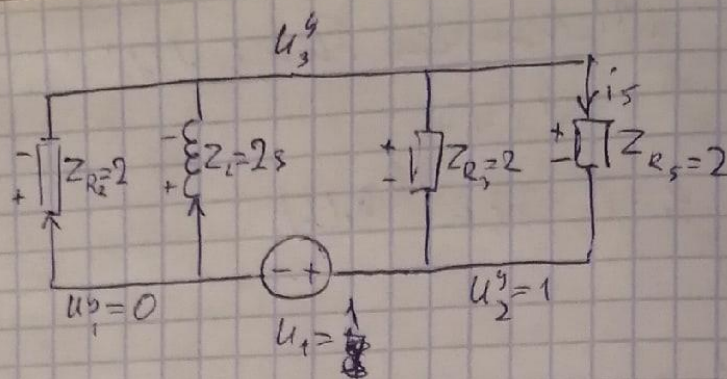 u₃ʸ
i₅
- Z_R₂=2 +
- Z_L=2s +
+ Z_R₃=2 -
+ Z_R₅=2 -
- +
u₁ʸ=0
u₂ʸ=1
u₁=1